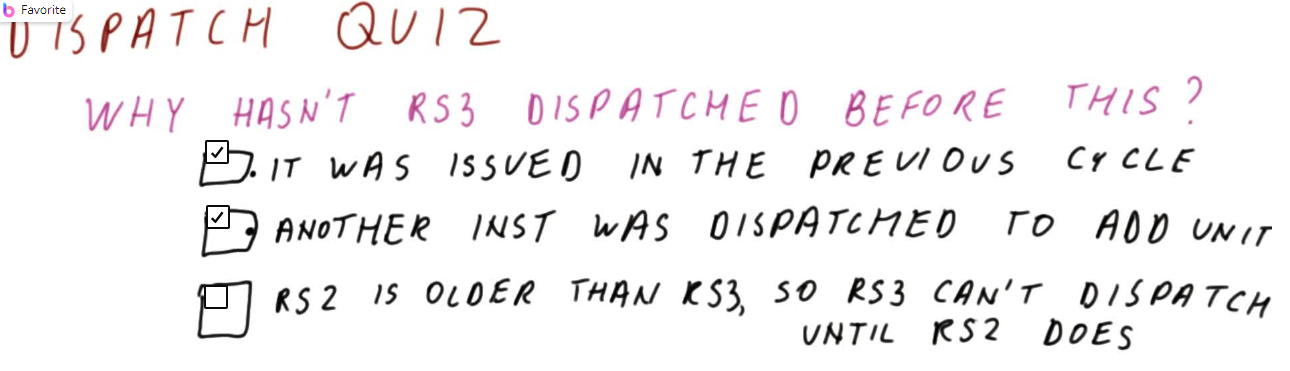 Favorite
DISPATCH QUIZ
WHY HASN'T RS3 DISPATCHED BEFORE THIS?
IT WAS ISSUED IN THE PREVIOUS CYCLE
ANOTHER INST WAS DISPATCHED TO ADD UNIT
RS2 IS OLDER THAN RS3, SO RS3 CAN'T DISPATCH
UNTIL RS2 DOES